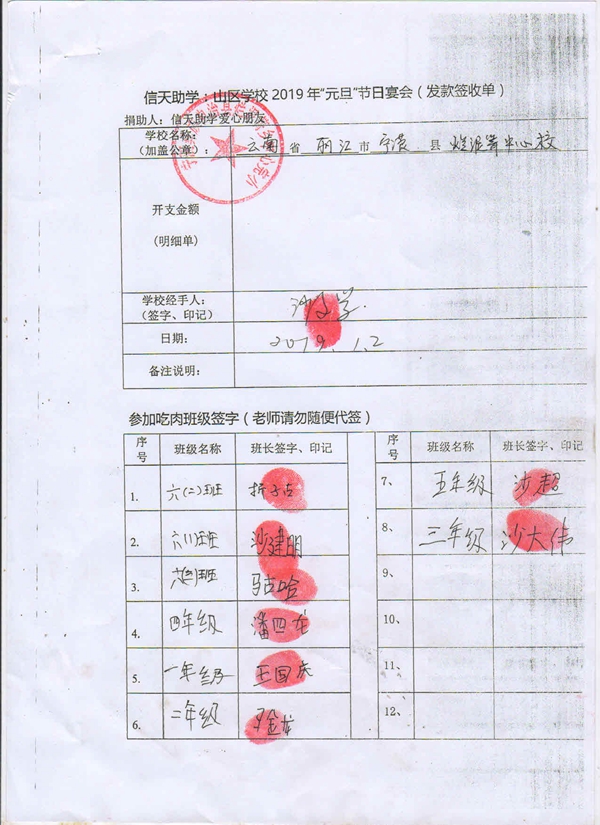 信天助学：山区学校2019年“元旦”节日宴会（发款签收单）
捐助人：信天助学爱心朋友
学校名称：
（加盖公章）： 云南 省 丽江 市 宁蒗 县 烂泥箐中心校
开支金额
（明细单）
学校经手人：
（签字、印记）
日期： 2019.1.2
备注说明：
参加吃肉班级签字（老师请勿随便代签）
序号 班级名称 班长签字、印记
1. 六(二)班
2. 六(一)班 沙建明
3. 马古哈
4. 四年级 潘四龙
5. 一年级 王国庆
6. 二年级 金龙
序号 班级名称 班长签字、印记
7、 五年级 沙超
8、 三年级 沙大伟
9、
10、
11、
12、